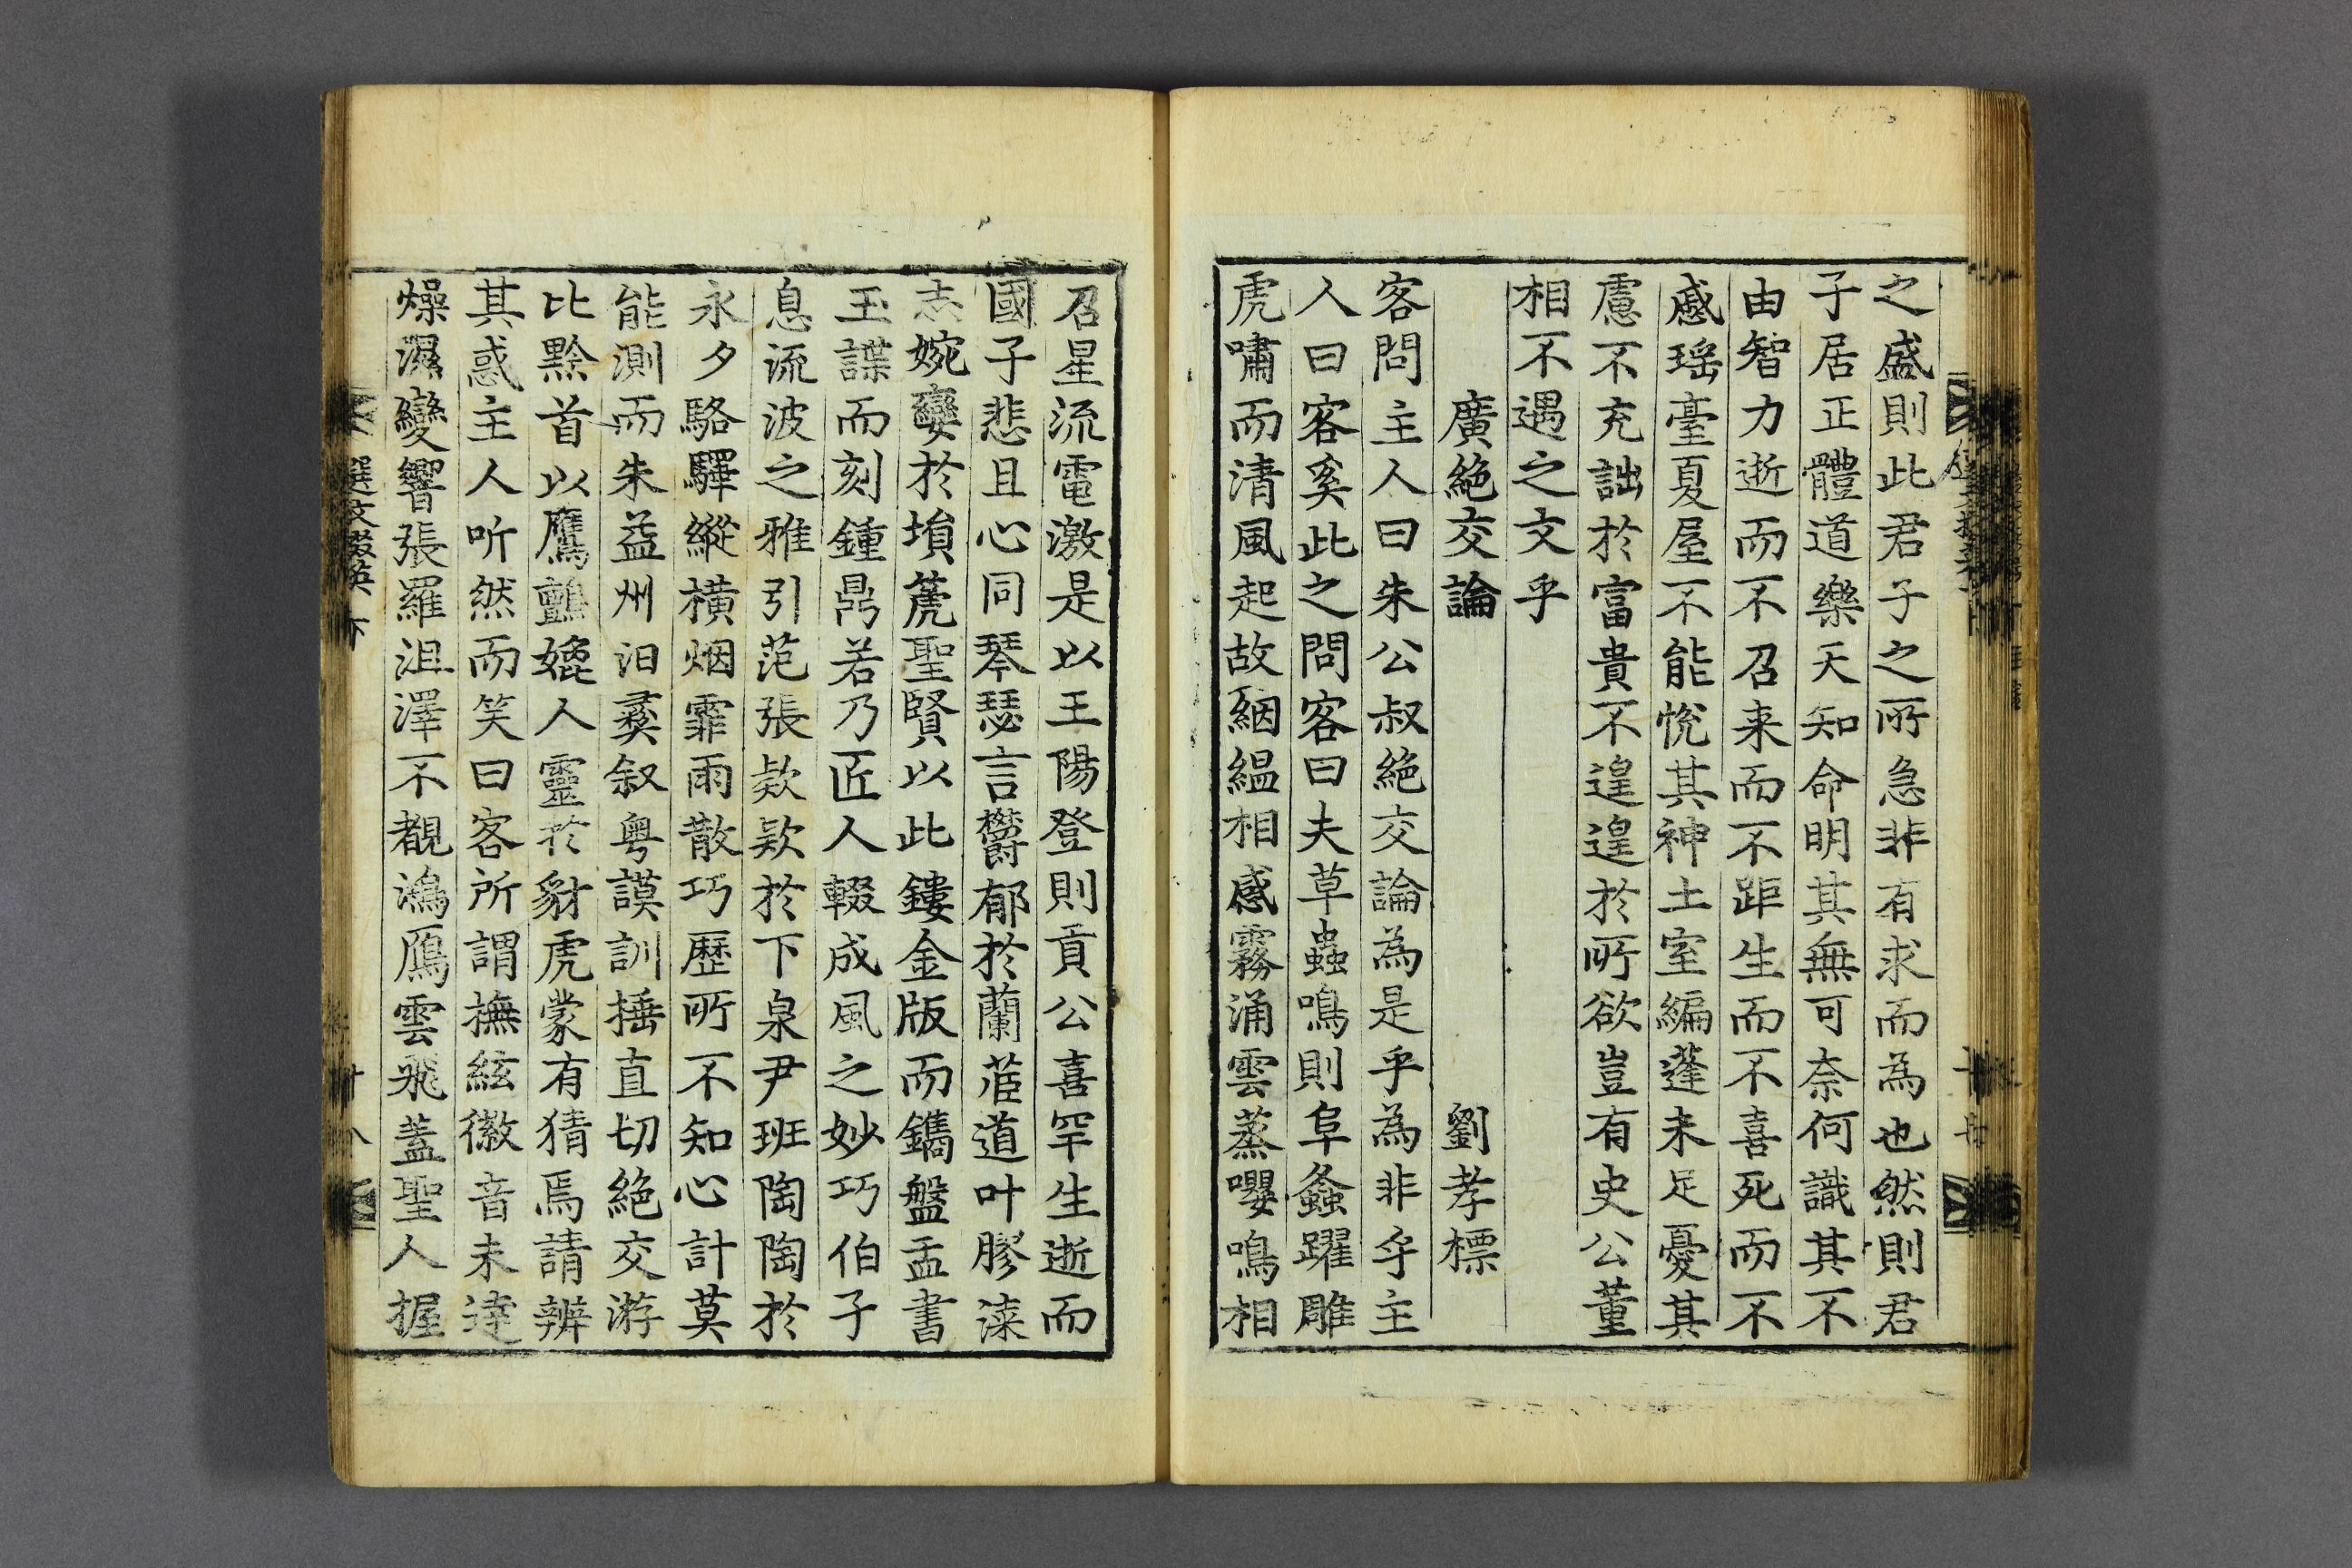 之盛則此君子之所急非有求而為也然則君
子居正體道樂天知命明其無可奈何識其不
由智力逝而不召来而不距生而不喜死而不
慼瑶臺夏屋不能悅其神土室編蓬未足憂其
慮不充詘於富貴不遑遑於所欲豈有史公董
相不遇之文乎
廣絶交論 劉孝標
客問主人曰朱公叔絶交論為是乎為非乎主
人曰客奚此之問客曰夫草蟲鳴則阜螽躍雕
虎嘯而清風起故絪緼相感霧涌雲蒸嚶鳴相
召星流電激是以王陽登則貢公喜罕生逝而
國子悲且心同琴瑟言鬱郁於蘭茞道叶膠漆
志婉孌於塤篪聖賢以此鏤金版而鐫盤盂書
玉諜而刻鍾鼎若乃匠人輟成風之妙巧伯子
息流波之雅引范張欵欵於下泉尹班陶陶於
永夕駱驛縱横烟霏雨散巧歷所不知心計莫
能測而朱益州汨彛叙粤謨訓捶直切絶交游
比黔首以鷹鸇媲人靈於豺虎蒙有猜焉請辨
其惑主人听然而笑曰客所謂撫絃徽音未達
燥濕變響張羅沮澤不覩鴻鴈雲飛蓋聖人握
選文掇英 下
十八